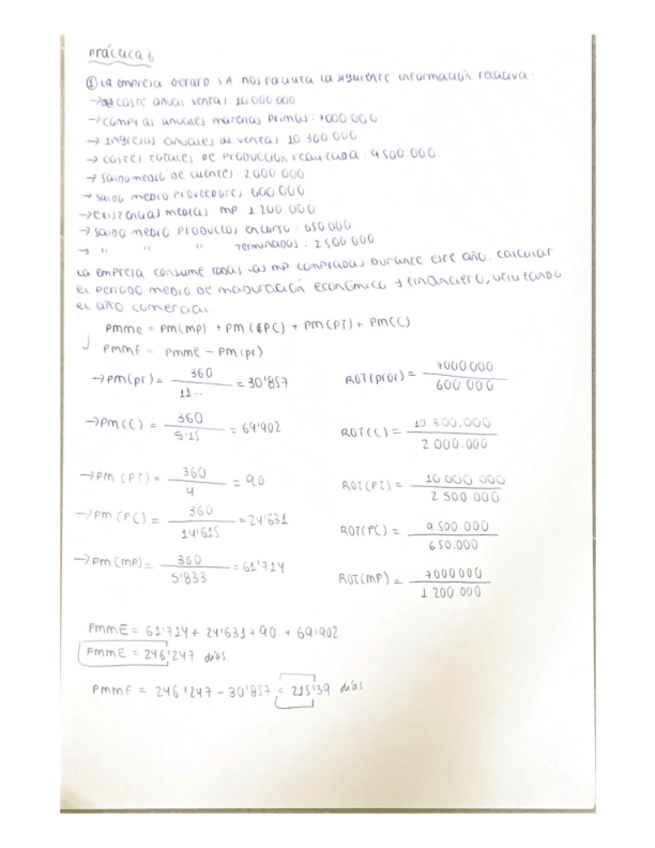 Práctica 6
① La empresa Octaro SA nos facilita la siguiente información relativa:
→ coste anual ventas: 10.000.000
→ compras anuales materias primas: 7000 000
→ Ingresos anuales de ventas 10.300.000
→ costes totales de producción realizada: 9500.000
→ saldo medio de cuentes: 2000 000
→ saldo medio proveedores 600 000
→ existencias medias mp: 1 200.000
→ saldo medio productos en curso: 650.000
→ " " " terminados: 2500 000
La empresa consume todas las mp compradas durante este año. calcular
el periodo medio de maduración económico y financiero, utilizando
el año comercial.
PMME = PM(MP) + PM (PC) + PM(PT) + PM(C)
PMMF = PMME - PM(pr)
→ PM(pr) = 360 / 11.. = 30'857 ROT(prov) = 7000 000 / 600 000
→ PM(C) = 360 / 5'15 = 69'902 ROT(C) = 10 300.000 / 2 000.000
→ PM (PT) = 360 / 4 = 90 ROT(PT) = 10 000 000 / 2 500 000
→ PM (PC) = 360 / 14'615 = 24'631 ROT(PC) = 9 500 000 / 650.000
→ PM(MP) = 360 / 5'833 = 61'714 ROT(MP) = 7000000 / 1 200 000
PMME = 61'714 + 24'631 + 90 + 69'902
PMME = 246'247 días
PMMF = 246'247 - 30'857 = 215'39 días